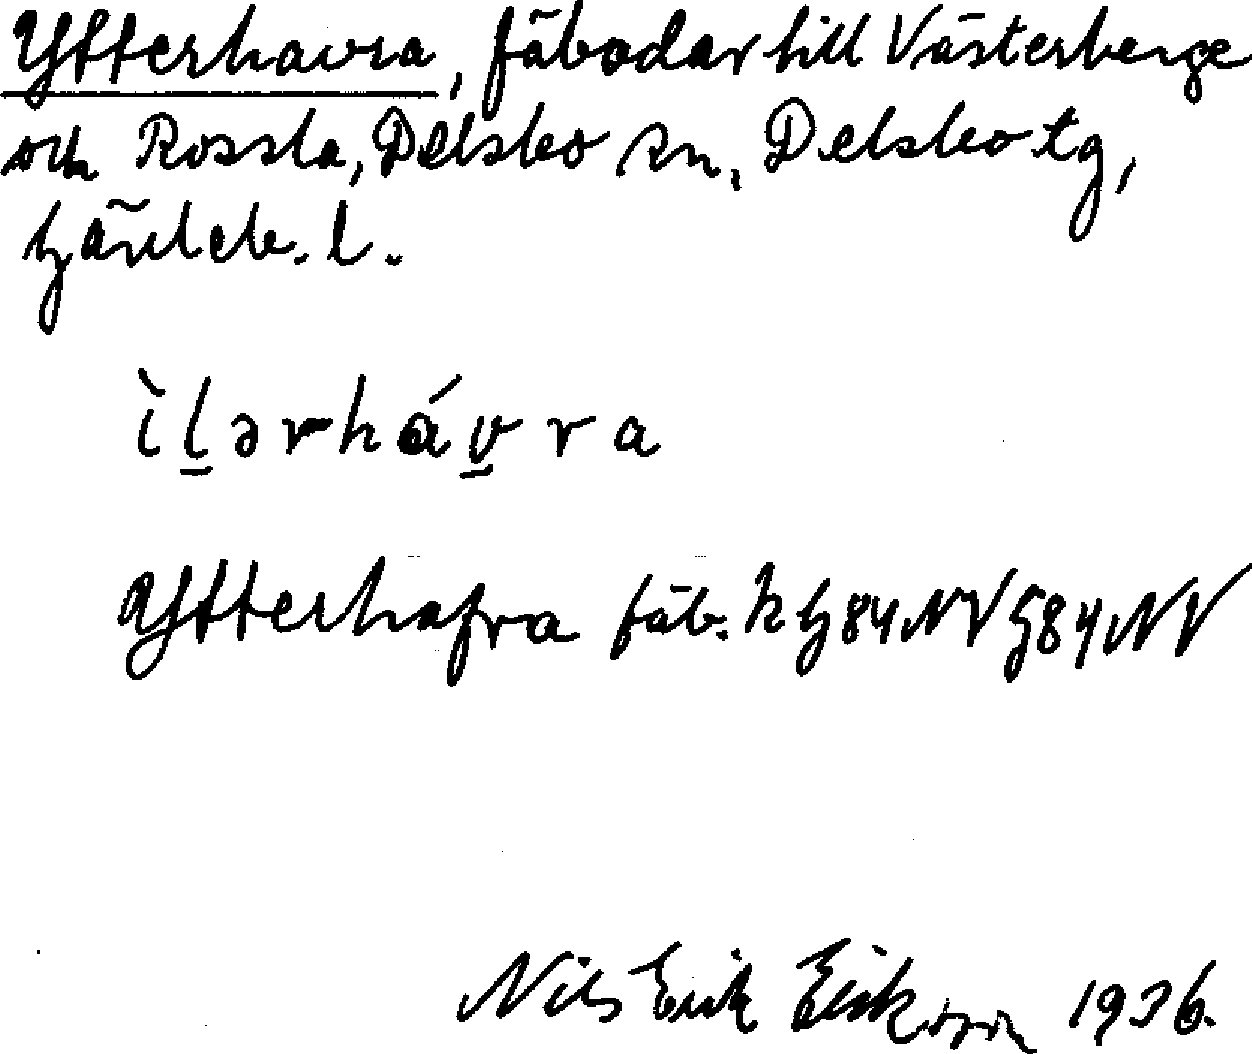 Ytterhavra, fäbodar till Västerberge
och Rossla, Delsbo sn, Delsbo tg,
Gävleb. l.
ìlərhávra
Ytterhafra fäb. k G84NV G84NV
Nils Erik Erikson 1936.